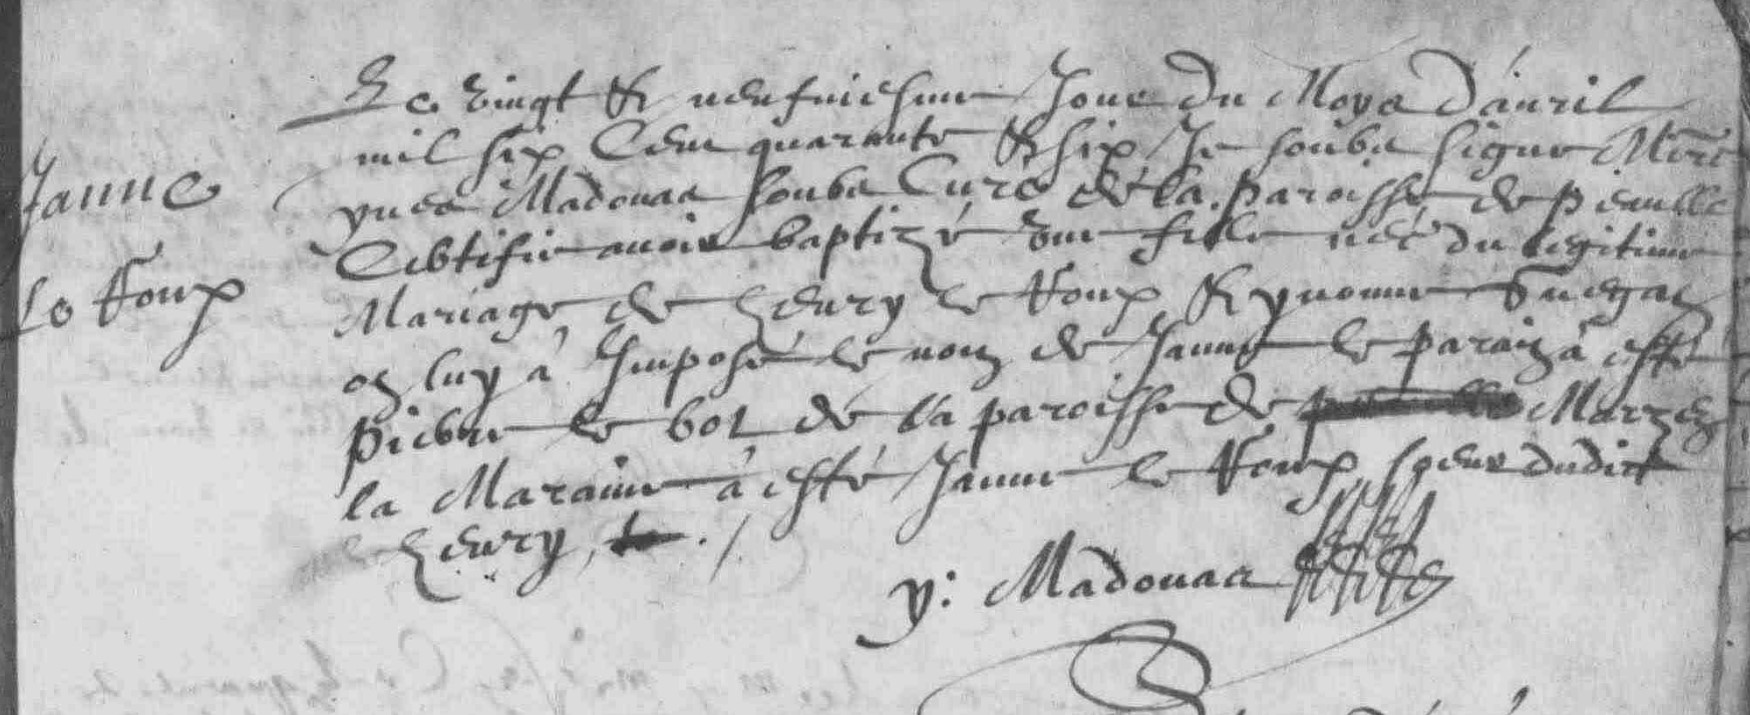 Janne
Le Roux
Le vingt & neufuiesme Jour du Moys d'auril
mil six Cent quarante & six Je soubs signe Mre
yues Madouas soubs Curé dé la paroisse de peaulle
Certifie auoir baptizé vne fille née du legitime
Mariage de henry le Roux & yuonne
on luy à Imposé le nom de Janne le parain à esté
pierre le bot dé la paroisse de Marzen
la Maraine à esté Janne le Roux soeur dudict
henry
y: Madouas